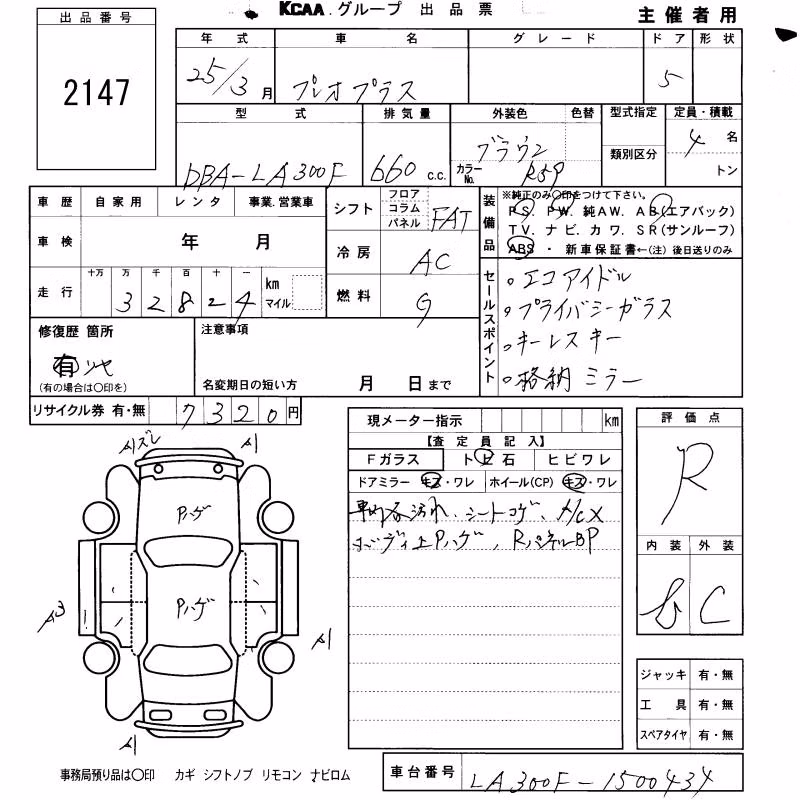 KCAA.グループ 出品票
主催者用
出品番号
2147
年式 車名 グレード ドア 形状
25/3月 プレオプラス 5
型式 排気量 外装色 色替 型式指定 定員・積載
DBA-LA300F 660 c.c. ブラウン カラーNo. R59 類別区分 4名
トン
車歴 自家用 レンタ 事業.営業車
車検 年 月
走行 十万 万 千 百 十 一 km マイル
3 2 8 2 4
シフト フロア コラム パネル FAT
冷房 AC
燃料 G
装備品
※純正のみ○印をつけて下さい。
PS. PW. 純AW. AB(エアバック)
TV. ナビ. カワ. SR(サンルーフ)
ABS ・ 新車保証書←(注) 後日送りのみ
セールスポイント
。エコアイドル
。プライバシーガラス
。キーレスキー
。格納ミラー
修復歴 箇所
有
(有の場合は○印を)
注意事項
名変期日の短い方 月 日まで
リサイクル券 有・無 7320円
現メーター指示 km
【査定員記入】
Fガラス トビ石 ヒビワレ
ドアミラー キズ・ワレ ホイール(CP) キズ・ワレ
車内汚れ、シートコゲ、A/C X
ボディ上Pハゲ、RパネルBP
評価点
R
内装 外装
C
ジャッキ 有・無
工具 有・無
スペアタイヤ 有・無
A1ズレ A1
Pハゲ
Pハゲ
A3 !
A1
A1
事務局預り品は○印 カギ シフトノブ リモコン ナビロム
車台番号 LA300F-1500434